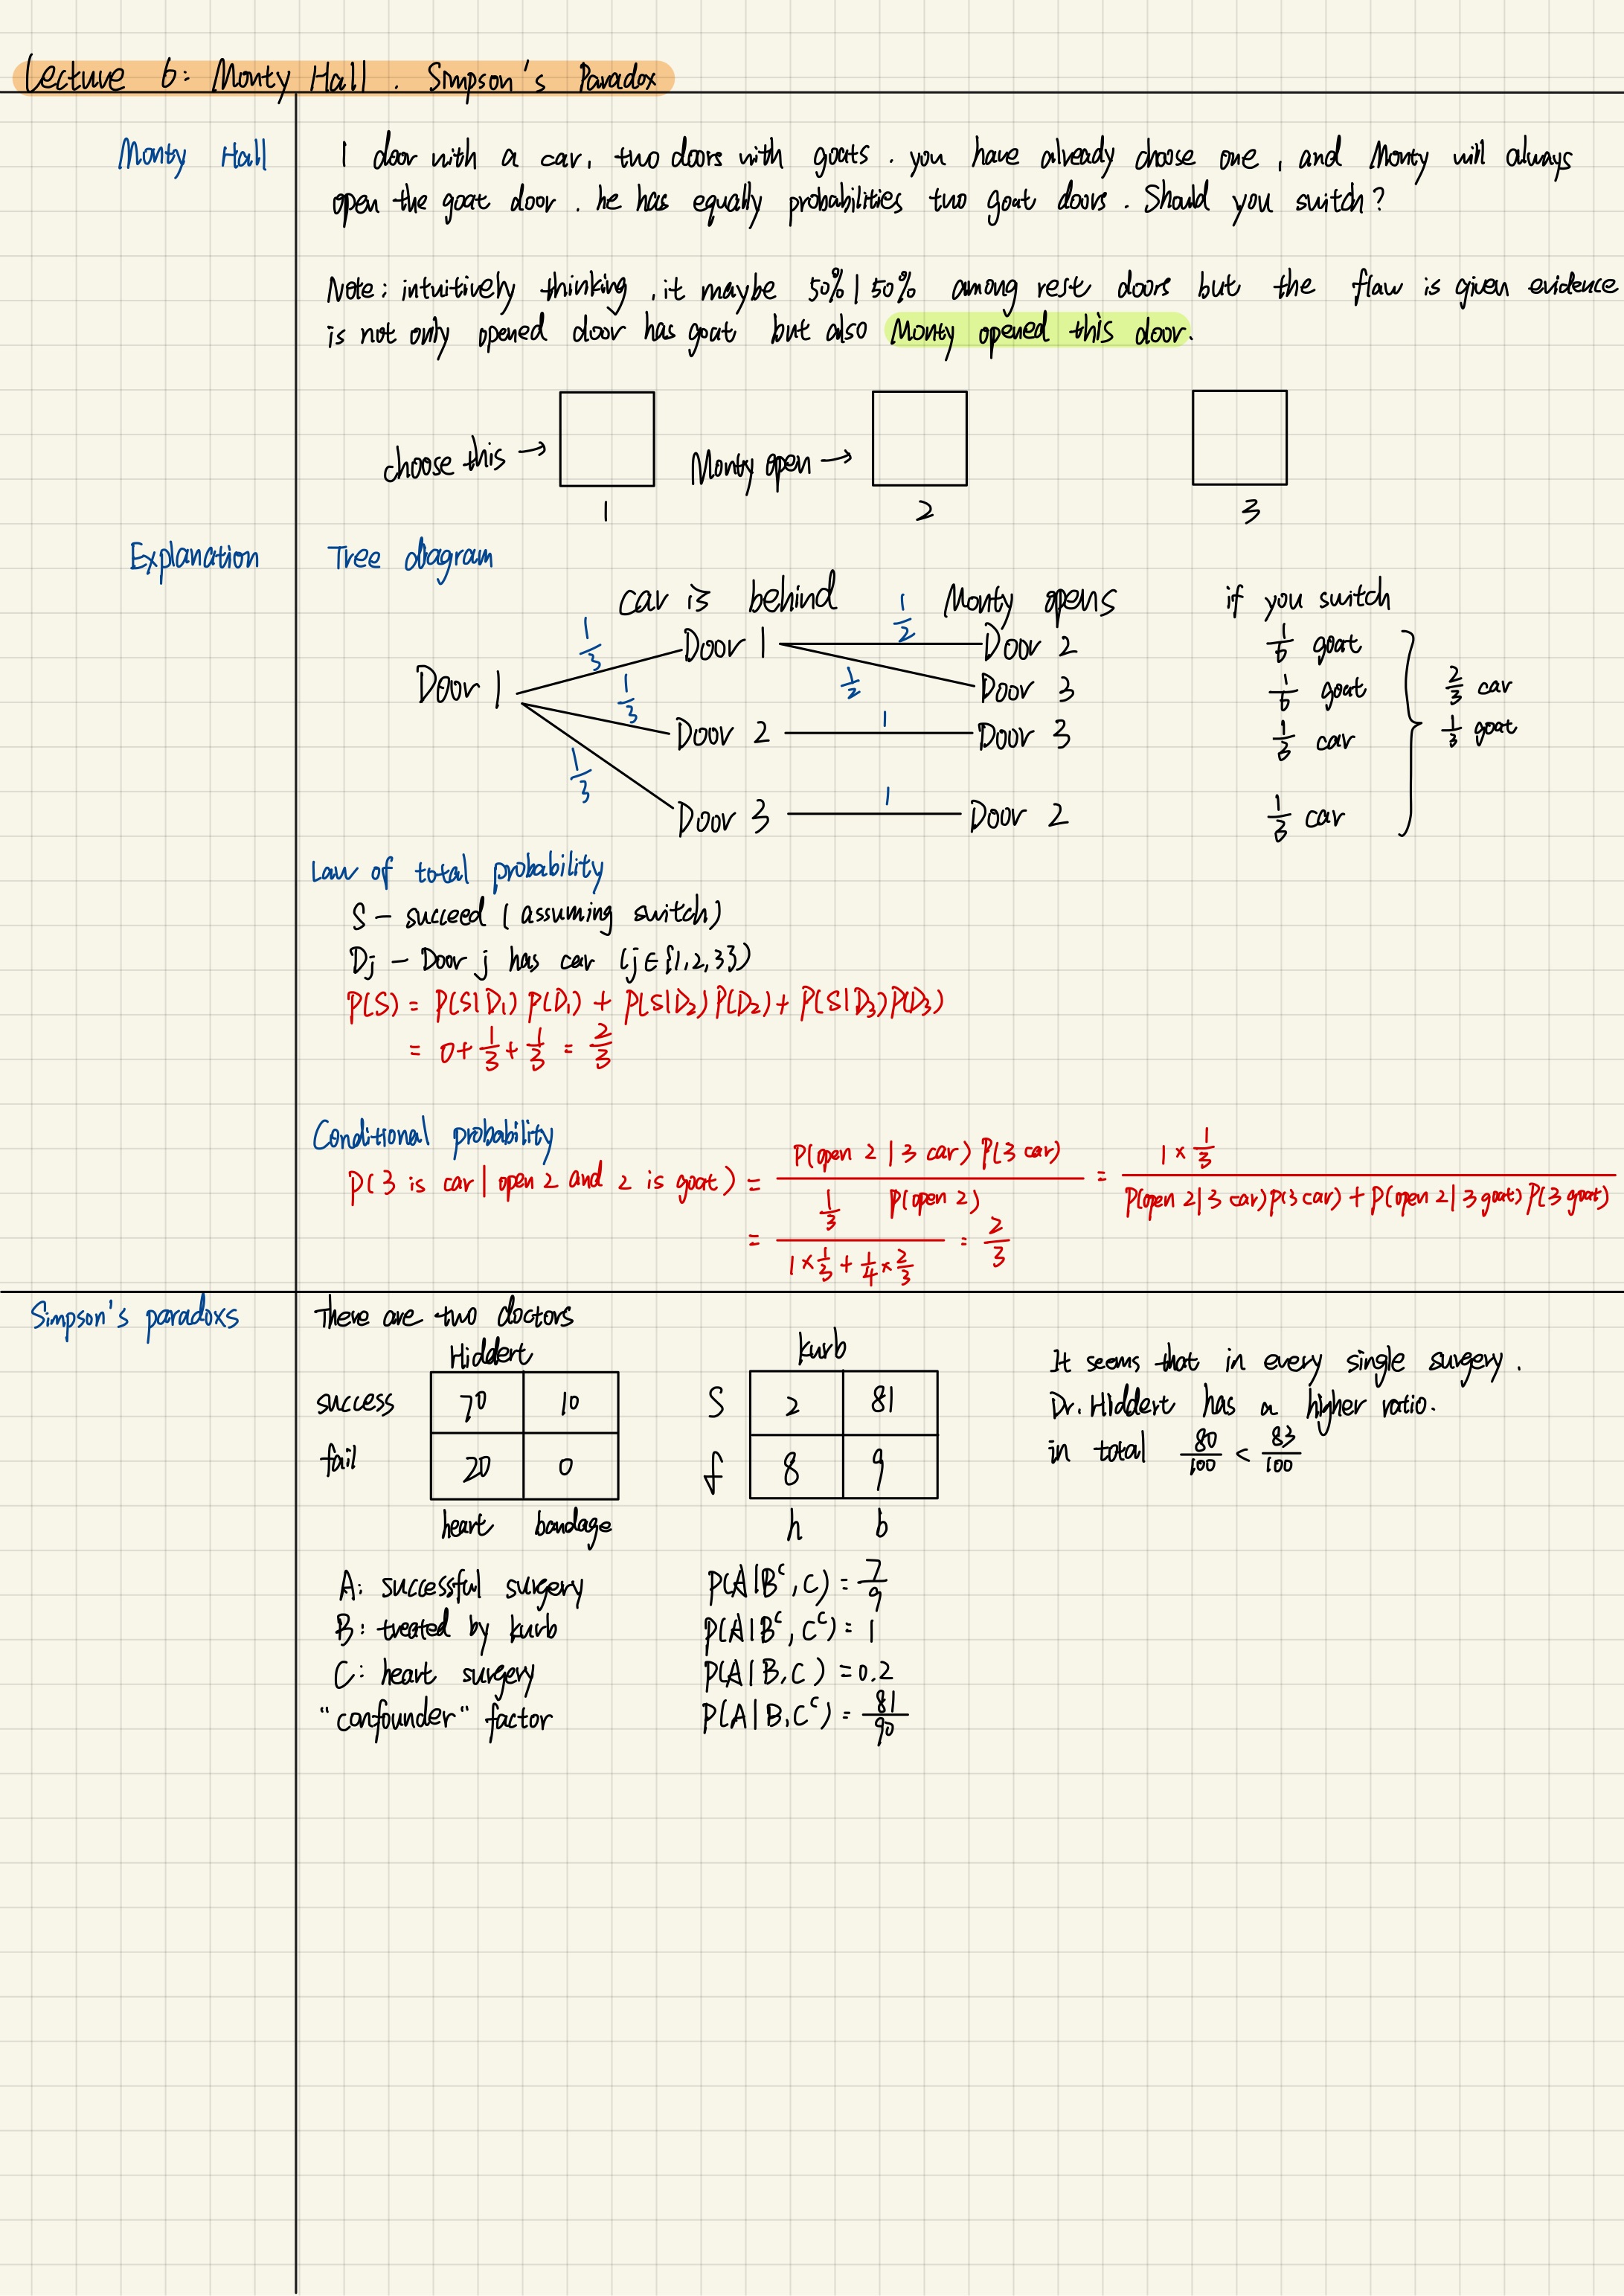 Lecture 6: Monty Hall. Simpson's Paradox
Monty Hall
1 door with a car, two doors with goats. you have already choose one, and Monty will always
open the goat door. he has equally probabilities two goat doors. Should you switch?
Note: intuitively thinking, it maybe 50% | 50% among rest doors but the flaw is given evidence
is not only opened door has goat but also Monty opened this door.
choose this → Monty open →
1 2 3
Explanation
Tree diagram
car is behind Monty opens if you switch
1/3 Door 1 1/2 Door 2 1/6 goat
Door 1 1/2 Door 3 1/6 goat 2/3 car
1/3 Door 2 1 Door 3 1/3 car 1/3 goat
1/3 Door 3 1 Door 2 1/3 car
Law of total probability
S – succeed (assuming switch)
Dj – Door j has car (j∈{1,2,3})
P(S) = P(S|D₁)P(D₁) + P(S|D₂)P(D₂) + P(S|D₃)P(D₃)
= 0 + 1/3 + 1/3 = 2/3
Conditional probability
P(3 is car | open 2 and 2 is goat) = P(open 2 | 3 car) P(3 car) / P(open 2) = 1 × 1/3 / P(open 2 | 3 car) P(3 car) + P(open 2 | 3 goat) P(3 goat)
= 1/3 / 1 × 1/3 + 1/4 × 2/3 = 2/3
Simpson's paradoxs
There are two doctors
Hiddert
success 70 10
fail 20 0
heart bandage
kurb
S 2 81
f 8 9
h b
It seems that in every single surgery.
Dr. Hiddert has a higher ratio.
in total 80/100 < 83/100
A: successful surgery
B: treated by kurb
C: heart surgery
"confounder" factor
P(A|Bᶜ, C) = 7/9
P(A|Bᶜ, Cᶜ) = 1
P(A|B, C) = 0.2
P(A|B, Cᶜ) = 81/90